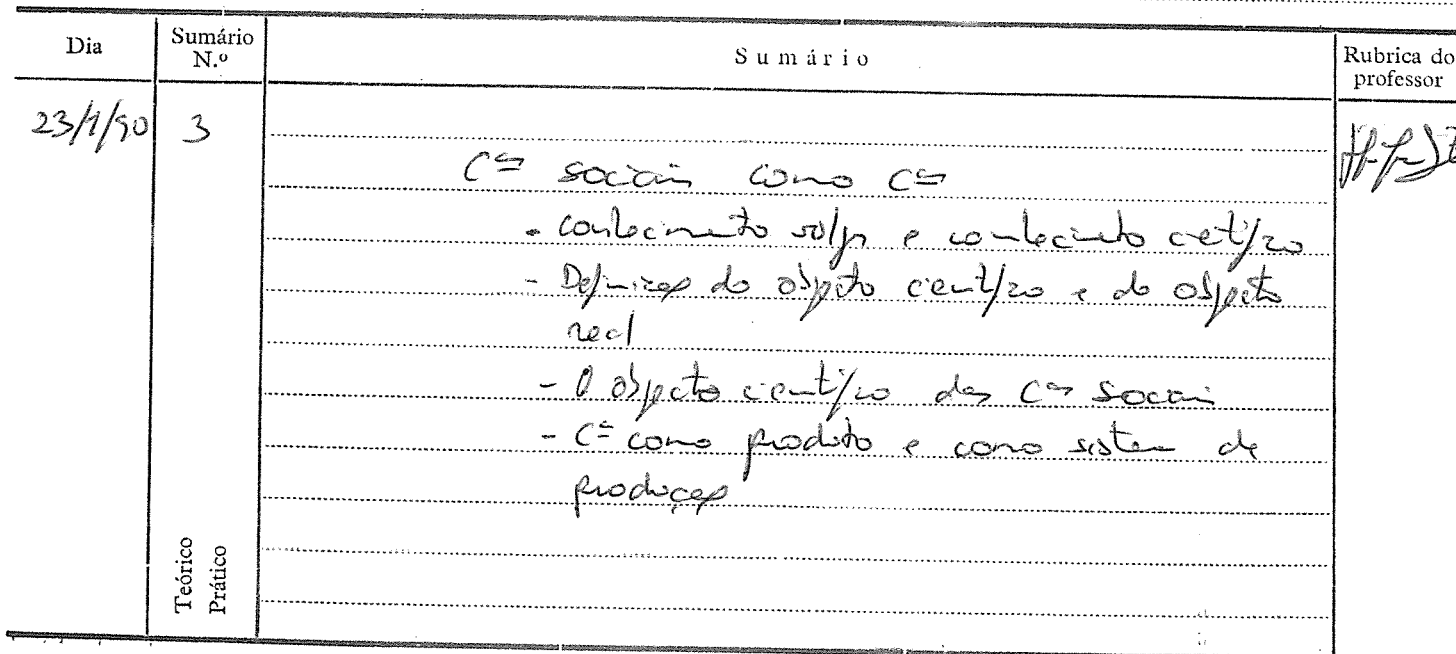 Dia
Sumário
N.º
Sumário
Rubrica do
professor
23/1/90
3
Cªs sociais como Cªs
- conhecimento vulgar e conhecimento científico
- Definição do objecto científico e do objecto
real
- O objecto científico das Cªs sociais
- Cª como produto e como sistema de
produção
Teórico
Prático